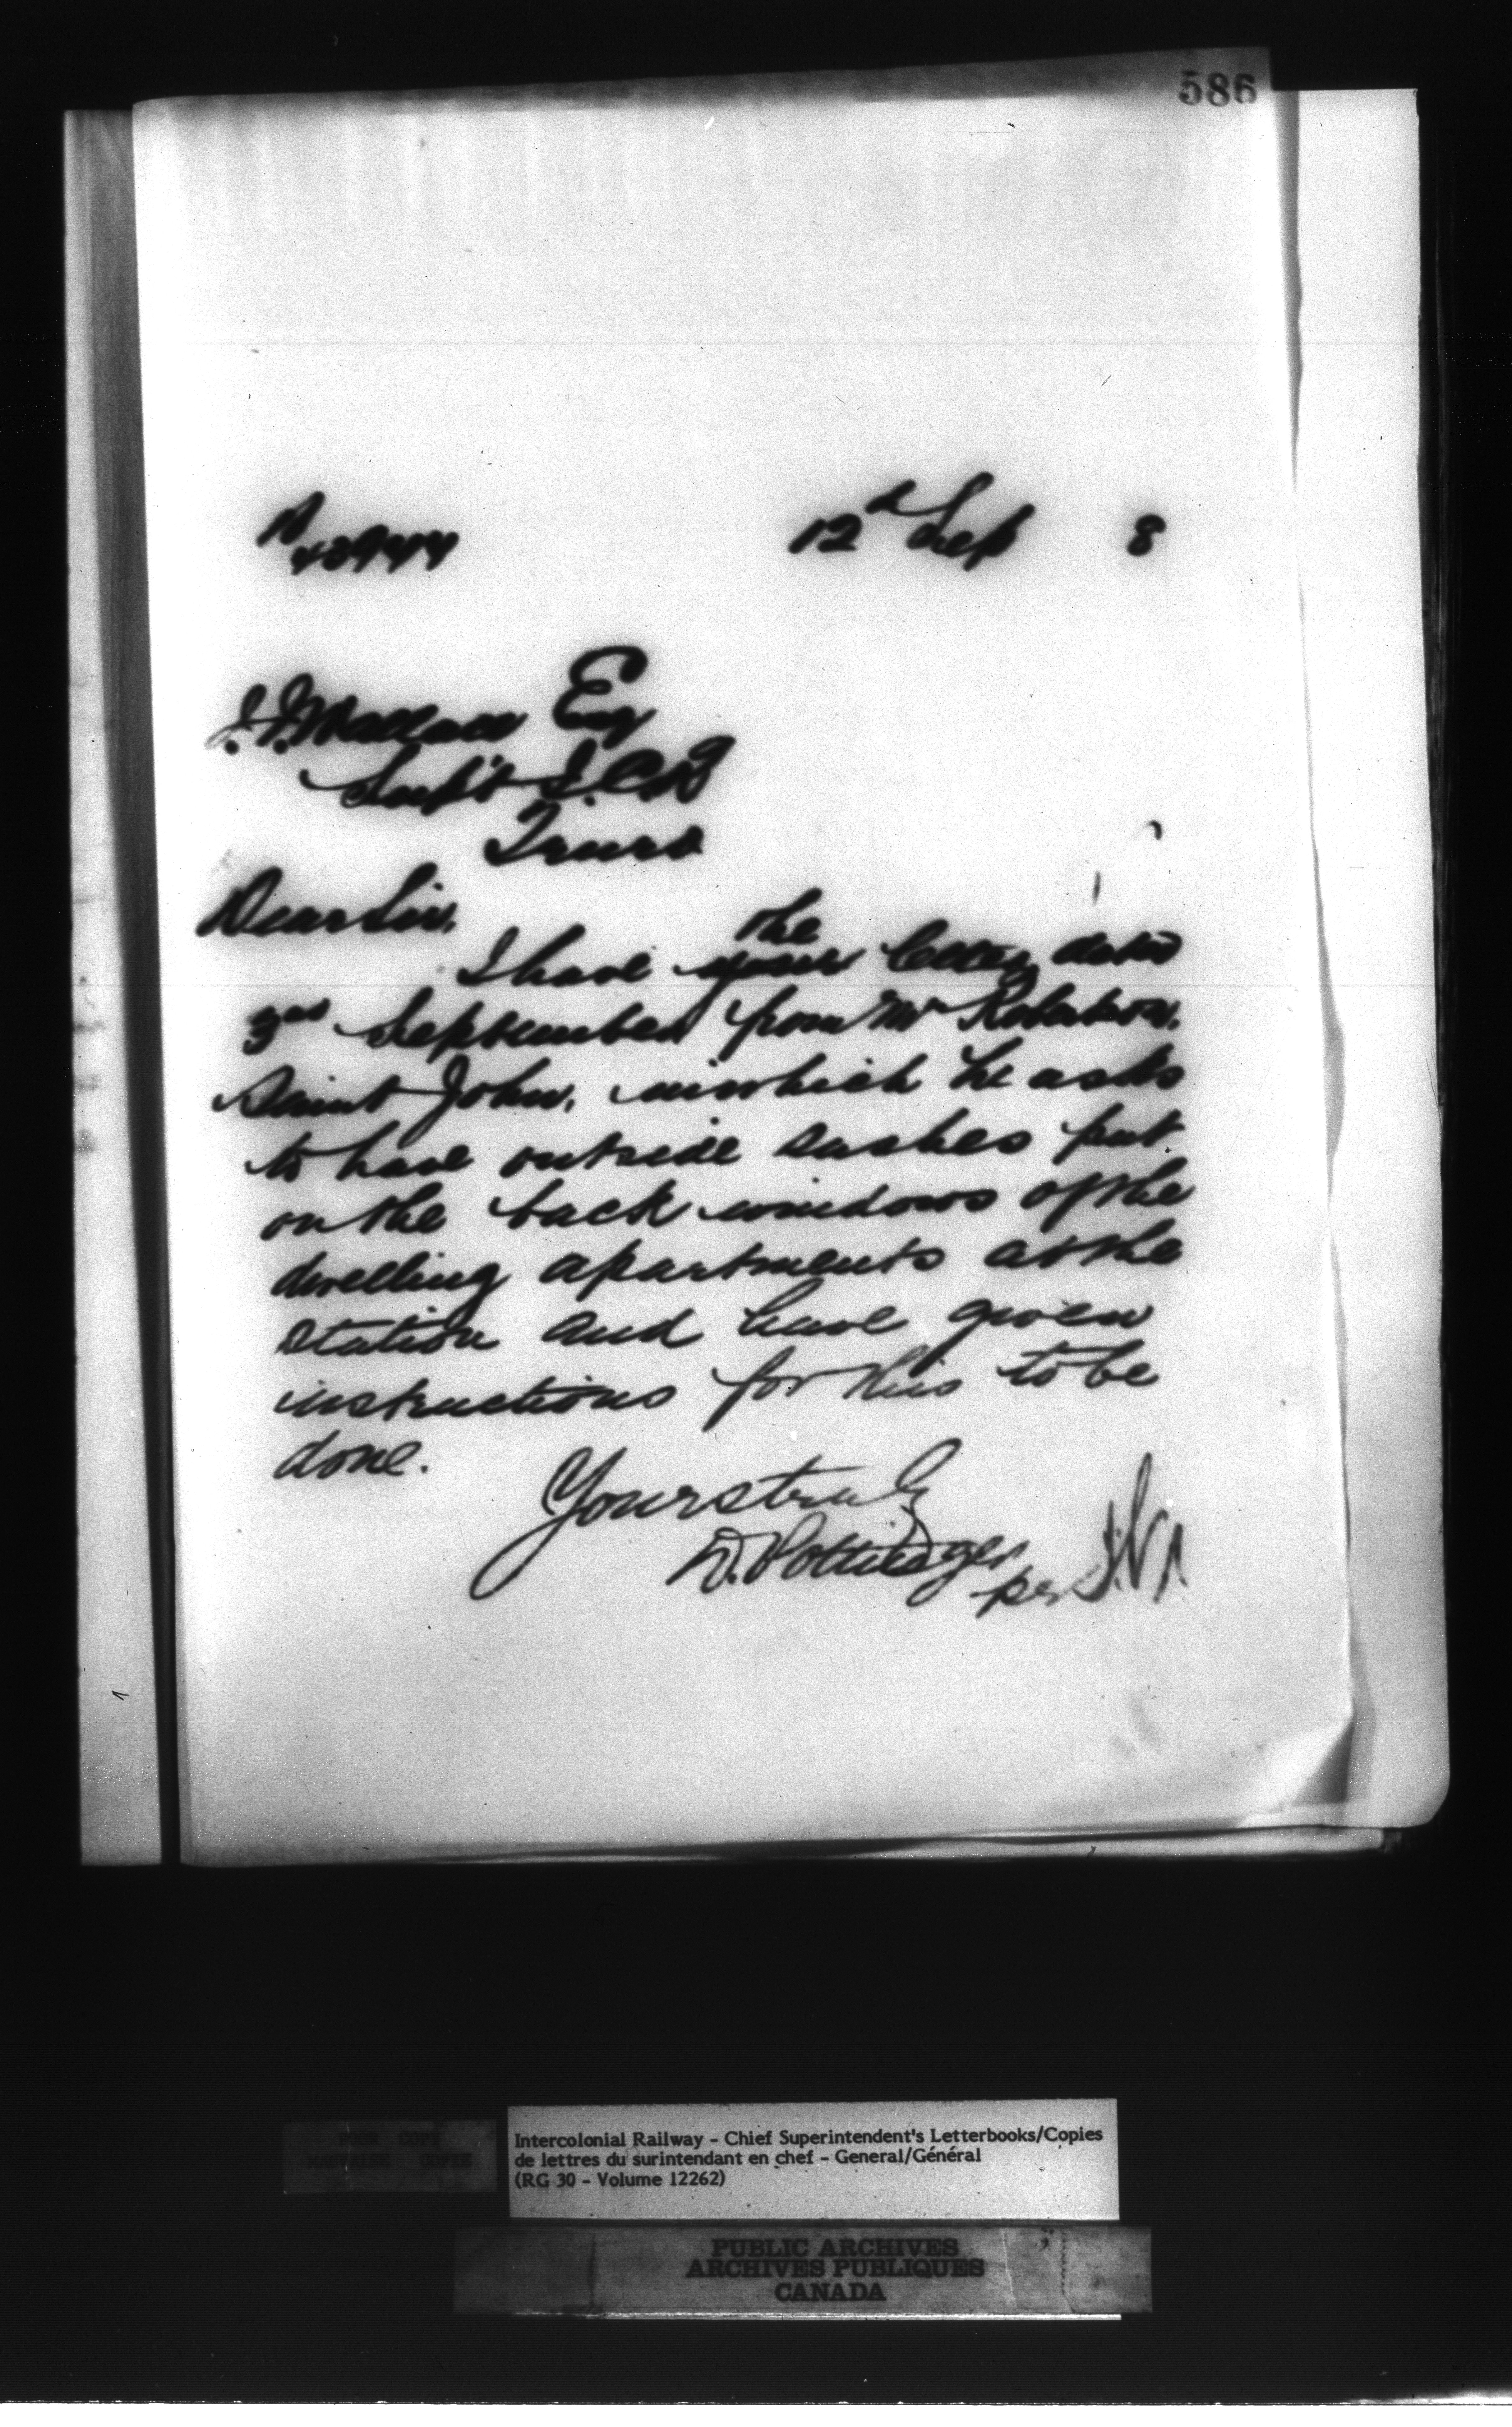 586
12th Sep 8
J. J. Wallace Esq
Supt I.C.Ry
Truro
Dear Sir,
the
I have your letter, dated
3rd September from Mr Robertson,
Saint John, in which he asks
to have outside sashes put
on the back windows of the
dwelling apartments at the
station and have given
instructions for this to be
done.
Yours truly
D. Pottinger
per
POOR COPY
MAUVAISE COPIE
Intercolonial Railway - Chief Superintendent's Letterbooks/Copies
de lettres du surintendant en chef - General/Général
(RG 30 - Volume 12262)
PUBLIC ARCHIVES
ARCHIVES PUBLIQUES
CANADA